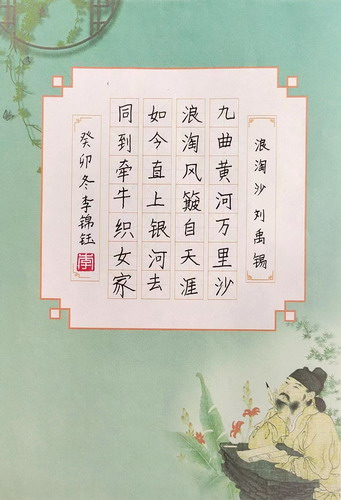 浪淘沙 刘禹锡
九曲黄河万里沙
浪淘风簸自天涯
如今直上银河去
同到牵牛织女家
癸卯冬李锦钰
李